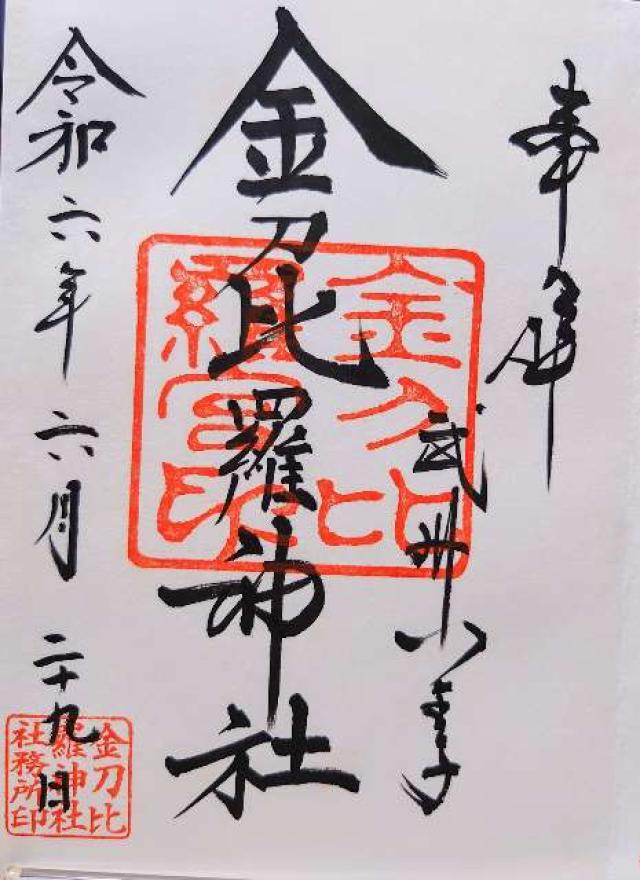 奉拝
武州八王子
金刀比羅神社
金刀比
羅宮印
令和六年六月二十九日
金刀比
羅神社
社務所印